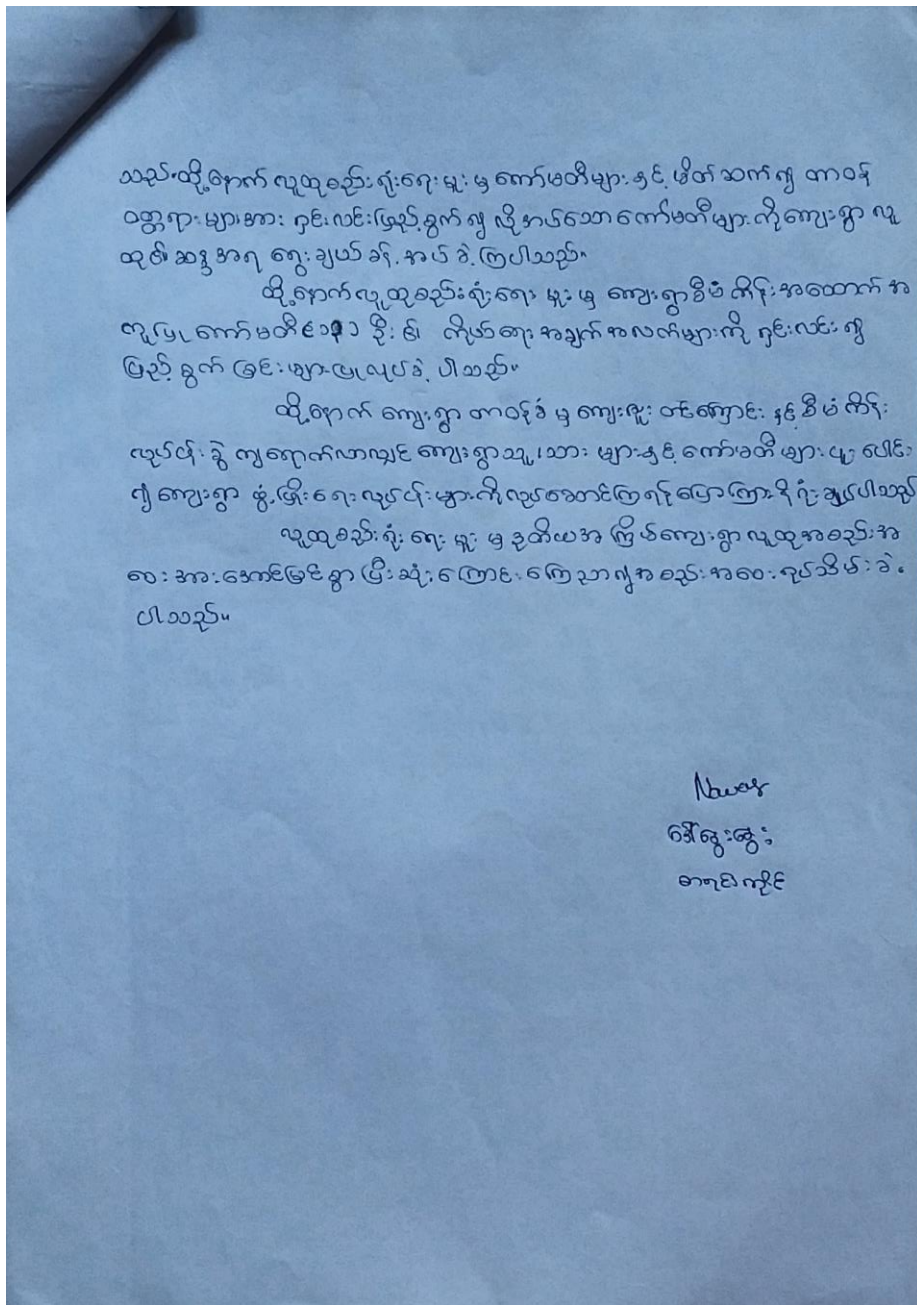 သည်။ထို့နောက် လူထုစည်းရုံးရေးမှူးမှ ကော်မတီများနှင့် ဖိတ်ဆက်၍ တာဝန်
ဝတ္တရားများအား ရှင်းလင်းဖြည့်စွက်၍ လိုအပ်သော ကော်မတီများကို ကျေးရွာ လူ
ထု၏ ဆန္ဒအရ ရွေးချယ်ခန့်အပ်ခဲ့ကြပါသည်။
ထို့နောက်လူထုစည်းရုံးရေးမှူးမှ ကျေးရွာစီမံကိန်းအထောက်အ
ကူပြုကော်မတီ ဦး၏ ကိုယ်ရေးအချက်အလက်များကို ရှင်းလင်း၍
ဖြည့်စွက်ခြင်းများပြုလုပ်ခဲ့ပါသည်။
ထို့နောက် ကျေးရွာတာဝန်ခံမှ ကျေးဇူးတင်ကြောင်းနှင့် စီမံကိန်း
လုပ်ငန်းခွဲ ကျရောက်လာလျှင် ကျေးရွာသူ/သားများနှင့် ကော်မတီများ ပူးပေါင်း
၍ ကျေးရွာ ဖွံ့ဖြိုးရေးလုပ်ငန်းများကို လုပ်ဆောင်ကြရန် ပြောကြား နိဂုံးချုပ်ပါသည်
လူထုစည်းရုံးရေးမှူးမှ ဒုတိယအကြိမ်ကျေးရွာလူထုအစည်းအ
ဝေးအားအောင်မြင်စွာပြီးဆုံးကြောင်းကြေညာ၍အစည်းအဝေးရုပ်သိမ်းခဲ့
ပါသည်။
ဒေါ်နွေးနွေး
စာရင်းကိုင်